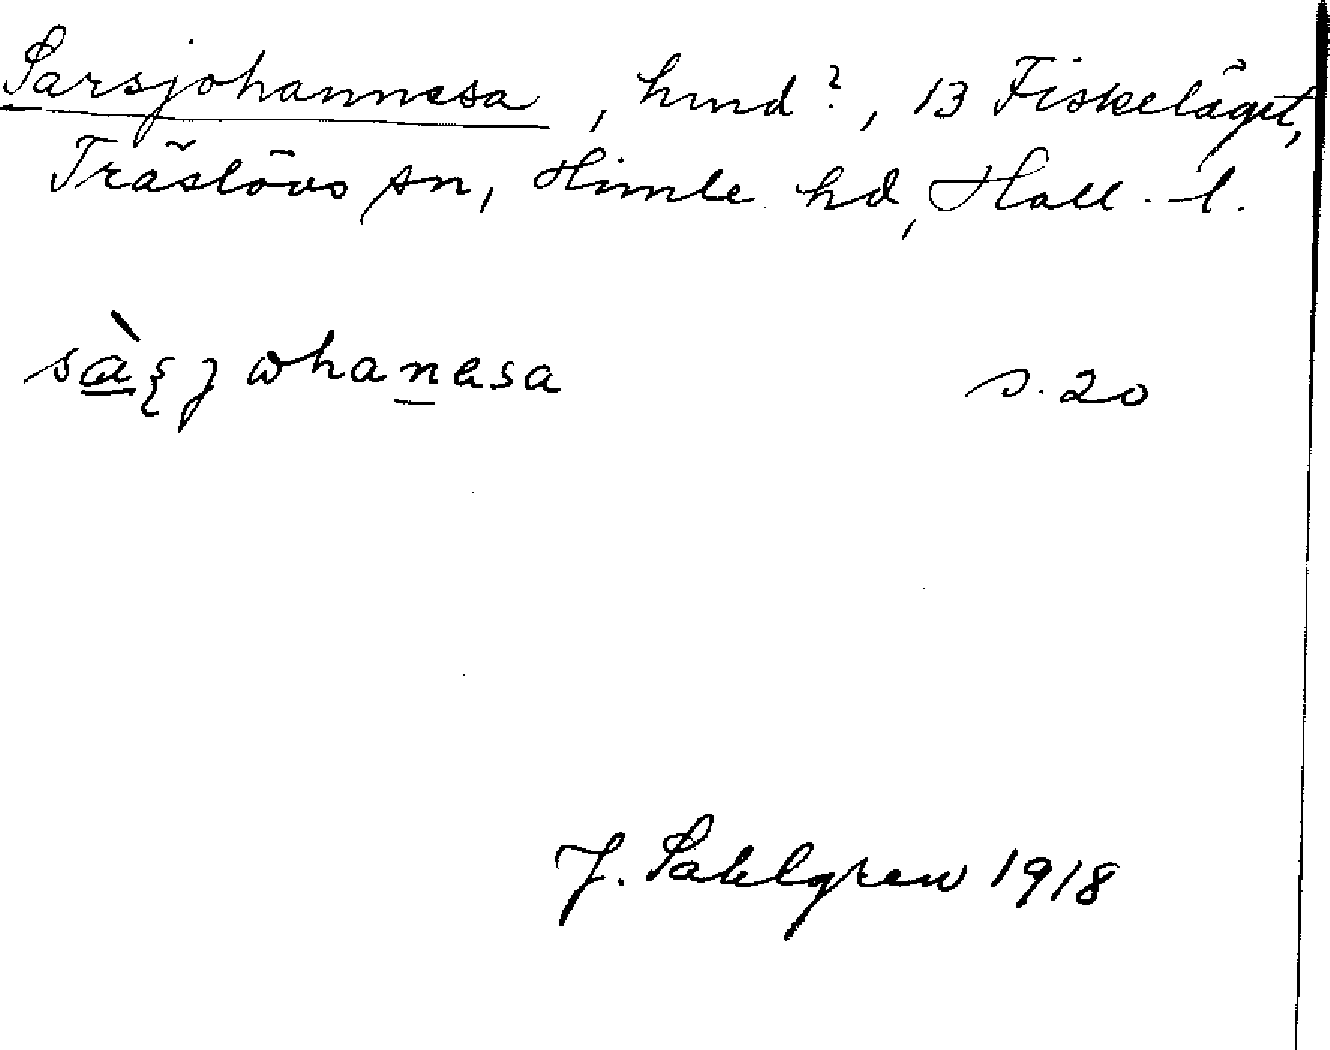 Sarsjohannesa, hmd?, 13 Fiskeläget,
Träslövs sn, Himle hd, Hall. l.
s. 20
J. Sahlgren 1918